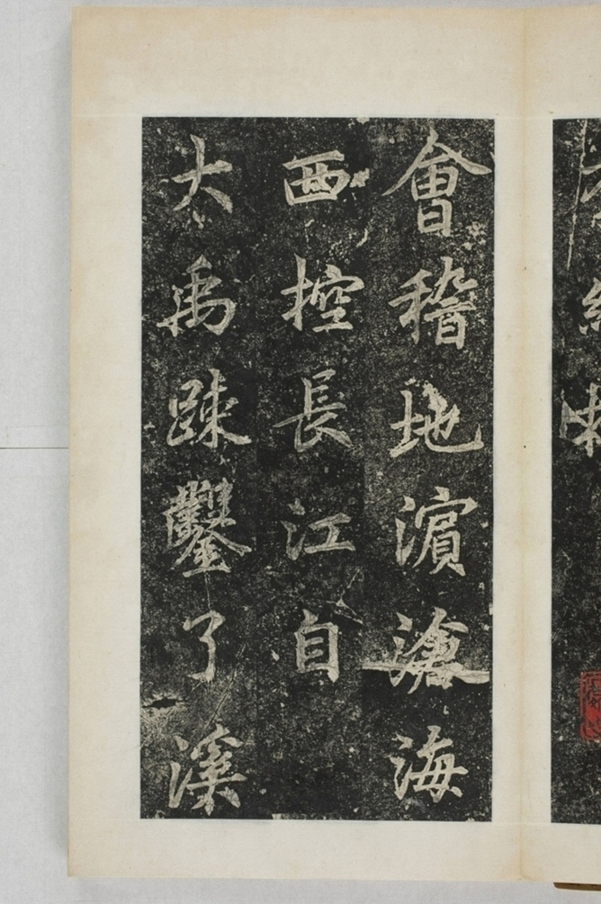 會稽地濵滄海
西控長江自
大禹疎鑿了溪